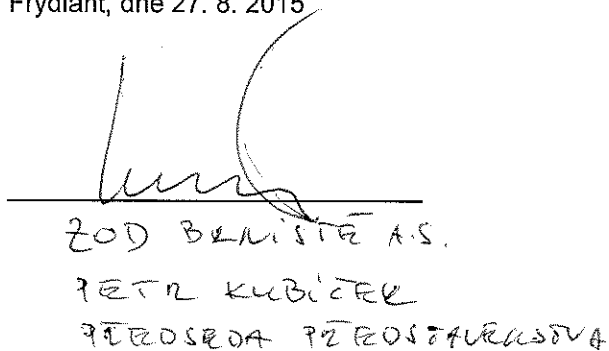 Frýdlant, dne 27. 8. 2015
ZOD BRNIŠTĚ A.S.
PETR KUBÍČEK
PŘEDSEDA PŘEDSTAVENSTVA